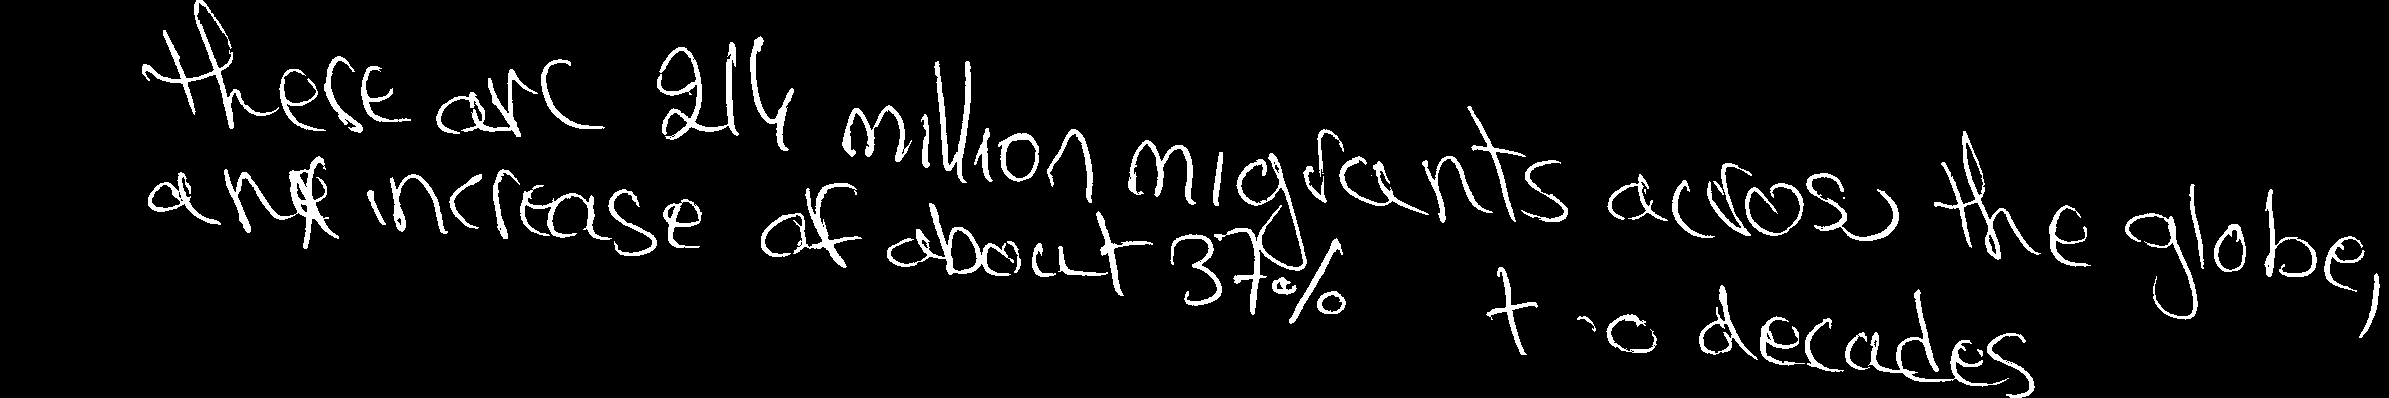 there are 214 million migrants across the globe,
an increase of about 37% decades